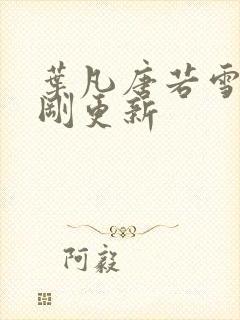 葉凡唐若雪
剛更新
阿毅